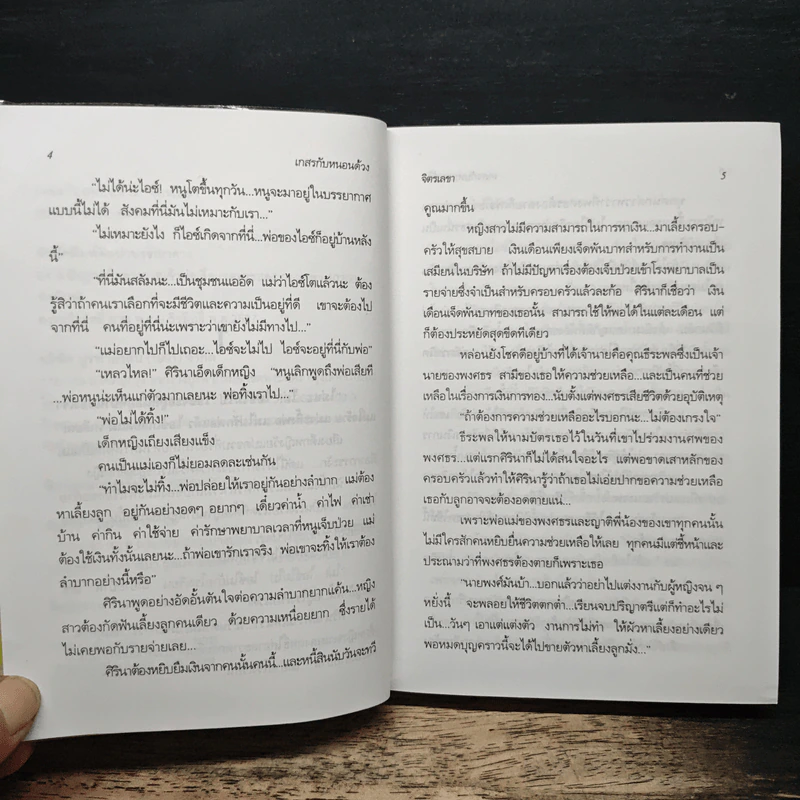 4
เกสรกับหนอนด้วง
"ไม่ได้น่ะไอซ์! หนูโตขึ้นทุกวัน...หนูจะมาอยู่ในบรรยากาศ
แบบนี้ไม่ได้ สังคมที่นี่มันไม่เหมาะกับเรา..."
"ไม่เหมาะยังไง ก็ไอซ์เกิดจากที่นี่...พ่อของไอซ์ก็อยู่บ้านหลัง
นี้"
"ที่นี่มันสลัมนะ...เป็นชุมชนแออัด แม่ว่าไอซ์โตแล้วนะ ต้อง
รู้สิว่าถ้าคนเราเลือกที่จะมีชีวิตและความเป็นอยู่ที่ดี เขาจะต้องไป
จากที่นี่ คนที่อยู่ที่นี่น่ะเพราะว่าเขายังไม่มีทางไป..."
"แม่อยากไปก็ไปเถอะ...ไอซ์จะไม่ไป ไอซ์จะอยู่ที่นี่กับพ่อ"
"เหลวไหล!" ศิรินาเอ็ดเด็กหญิง "หนูเลิกพูดถึงพ่อเสียที
...พ่อหนูน่ะเห็นแก่ตัวมากเลยนะ พ่อทิ้งเราไป..."
"พ่อไม่ได้ทิ้ง!"
เด็กหญิงเถียงเสียงแข็ง
คนเป็นแม่เองก็ไม่ยอมลดละเช่นกัน
"ทำไมจะไม่ทิ้ง...พ่อปล่อยให้เราอยู่กันอย่างลำบาก แม่ต้อง
หาเลี้ยงลูก อยู่กันอย่างอดๆ อยากๆ เดี๋ยวค่าน้ำ ค่าไฟ ค่าเช่า
บ้าน ค่ากิน ค่าใช้จ่าย ค่ารักษาพยาบาลเวลาที่หนูเจ็บป่วย แม่
ต้องใช้เงินทั้งนั้นเลยนะ...ถ้าพ่อเขารักเราจริง พ่อเขาจะทิ้งให้เราต้อง
ลำบากอย่างนี้หรือ"
ศิรินาพูดอย่างอัดอั้นตันใจต่อความลำบากยากแค้น...หญิง
สาวต้องกัดฟันเลี้ยงลูกคนเดียว ด้วยความเหนื่อยยาก ซึ่งรายได้
ไม่เคยพอกับรายจ่ายเลย...
ศิรินาต้องหยิบยืมเงินจากคนนั้นคนนี้...และหนี้สินนับวันจะทวี
จิตรเลขา
5
คูณมากขึ้น
หญิงสาวไม่มีความสามารถในการหาเงิน...มาเลี้ยงครอบ-
ครัวให้สุขสบาย เงินเดือนเพียงเจ็ดพันบาทสำหรับการทำงานเป็น
เสมียนในบริษัท ถ้าไม่มีปัญหาเรื่องต้องเจ็บป่วยเข้าโรงพยาบาลเป็น
รายจ่ายซึ่งจำเป็นสำหรับครอบครัวแล้วละก้อ ศิรินาก็เชื่อว่า เงิน
เดือนเจ็ดพันบาทของเธอนั้น สามารถใช้ให้พอได้ในแต่ละเดือน แต่
ก็ต้องประหยัดสุดขีดทีเดียว
หล่อนยังโชคดีอยู่บ้างที่ได้เจ้านายคือคุณธีระพลซึ่งเป็นเจ้า
นายของพงศธร สามีของเธอให้ความช่วยเหลือ...และเป็นคนที่ช่วย
เหลือในเรื่องการเงินการทอง...นับตั้งแต่พงศธรเสียชีวิตด้วยอุบัติเหตุ
"ถ้าต้องการความช่วยเหลืออะไรบอกนะ...ไม่ต้องเกรงใจ"
ธีระพลให้นามบัตรเธอไว้ในวันที่เขาไปร่วมงานศพของ
พงศธร...แต่แรกศิรินาก็ไม่ได้สนใจอะไร แต่พอขาดเสาหลักของ
ครอบครัวแล้วทำให้ศิรินารู้ว่าถ้าเธอไม่เอ่ยปากขอความช่วยเหลือ
เธอกับลูกอาจจะต้องอดตายแน่...
เพราะพ่อแม่ของพงศธรและญาติพี่น้องของเขาทุกคนนั้น
ไม่มีใครสักคนหยิบยื่นความช่วยเหลือให้เลย ทุกคนมีแต่ชี้หน้าและ
ประณามว่าที่พงศธรต้องตายก็เพราะเธอ
"นายพงศ์มันบ้า...บอกแล้วว่าอย่าไปแต่งงานกับผู้หญิงจน ๆ
หยั่งนี้ จะพลอยให้ชีวิตตกต่ำ...เรียนจบปริญญาตรีแต่ก็ทำอะไรไม่
เป็น...วันๆ เอาแต่แต่งตัว งานการไม่ทำ ให้ผัวหาเลี้ยงอย่างเดียว
พอหมดบุญคราวนี้จะได้ไปขายตัวหาเลี้ยงลูกมั่ง..."